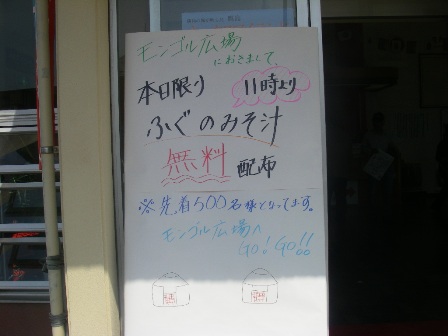 モンゴル広場
におきまして、
本日限り 11時より
ふぐのみそ汁
無料 配布
※先着500名様となってます。
モンゴル広場へ
GO! GO!!